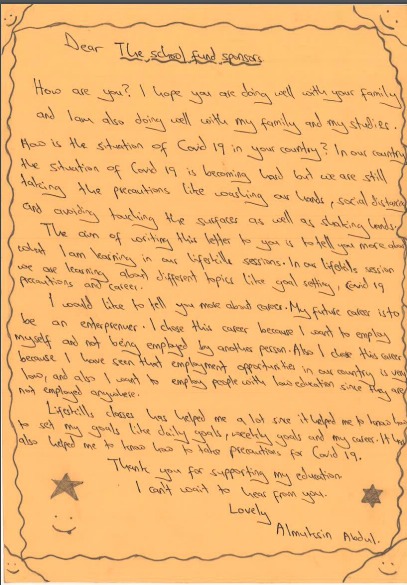 Dear The school fund sponsors
How are you? I hope you are doing well with your family
and I am also doing well with my family and my studies.
How is the situation of Covid 19 in your country? In our country
the situation of Covid 19 is becoming hard but we are still
taking the precautions like washing our hands, social distance
and avoiding touching the surfaces as well as shaking hands.
The aim of writing this letter to you is to tell you more about
what I am learning in our lifeskills sessions. In our lifeskills session
we are learning about different topics like goal setting, Covid 19
precautions and career.
I would like to tell you more about career. My future career is to
be an entreprenuer. I chose this career because I want to employ
myself and not being employed by another person. Also I chose this career
because I have seen that employment opportunities in our country is very
low, and also I want to employ people with low education since they are
not employed anywhere.
Lifeskills classes has helped me a lot since it helped me to know how
to set my goals like daily goals, weekly goals and my career. It has
also helped me to know how to take precautions for Covid 19.
Thank you for supporting my education
I can't wait to hear from you.
Lovely
Almuhsin Abdul.